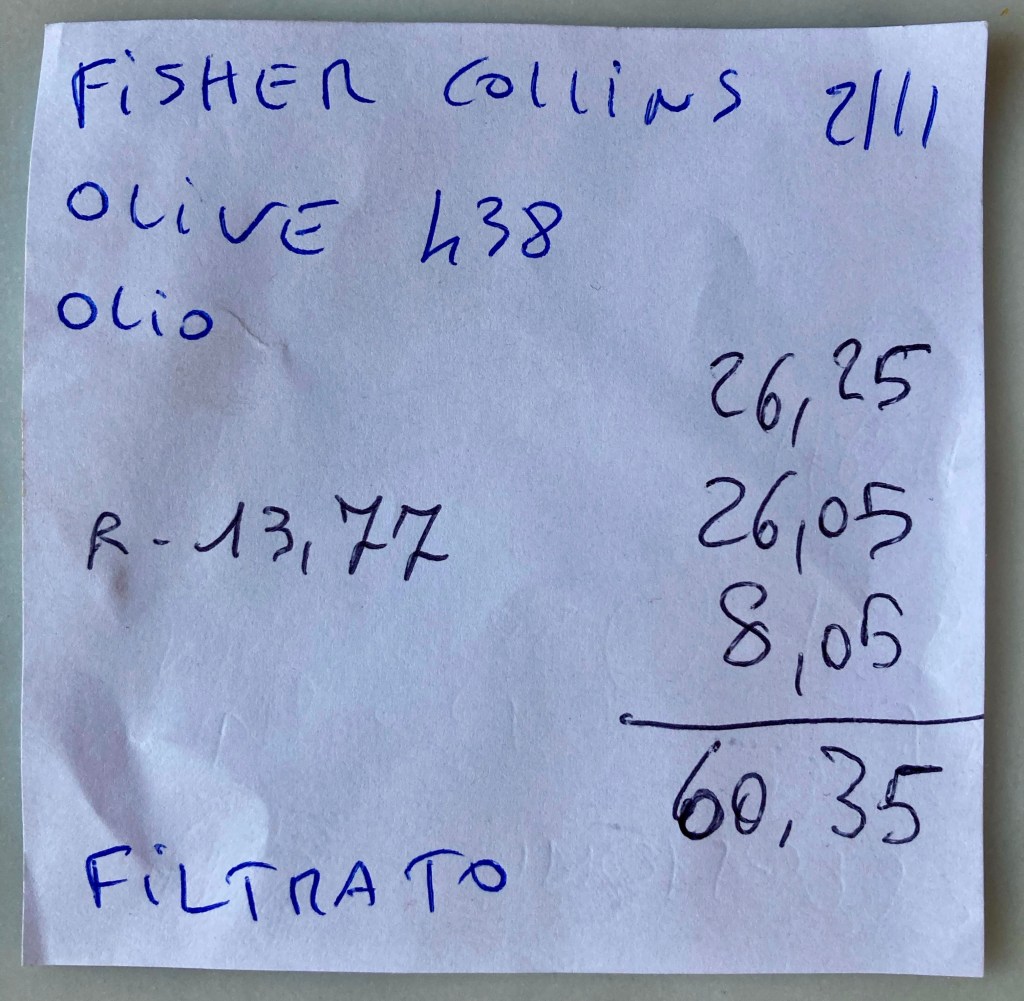 FiSHER COLLiNS 2/11
OLiVE 438
OLiO
26,25
R - 13,77 26,05
8,05
60,35
FiLTRATO